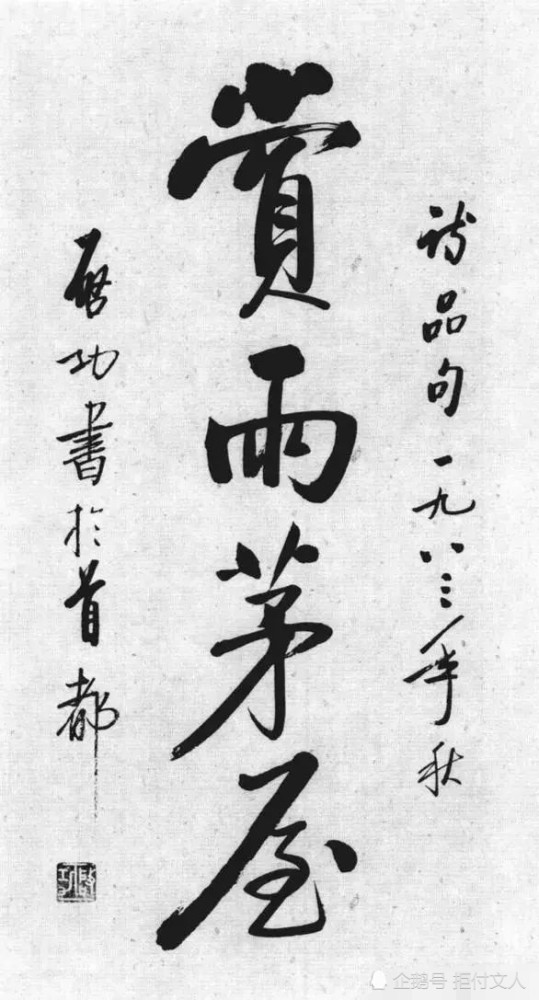 詩品句一九八三年秋
賞雨茅屋
啓功書於首都
啓功
企鹅号 拒付文人